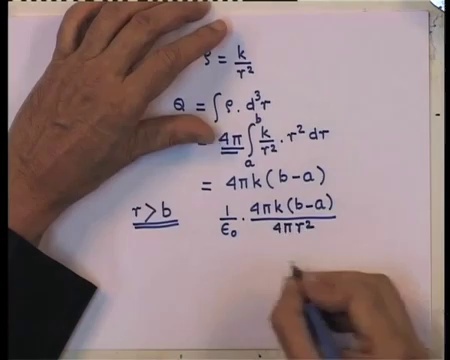 ρ = k/r²
Q = ∫ρ. d³r
= 4π ∫ₐᵇ k/r² · r² dr
= 4πk (b-a)
r > b 1/ε₀ · 4πk(b-a)/4πr²